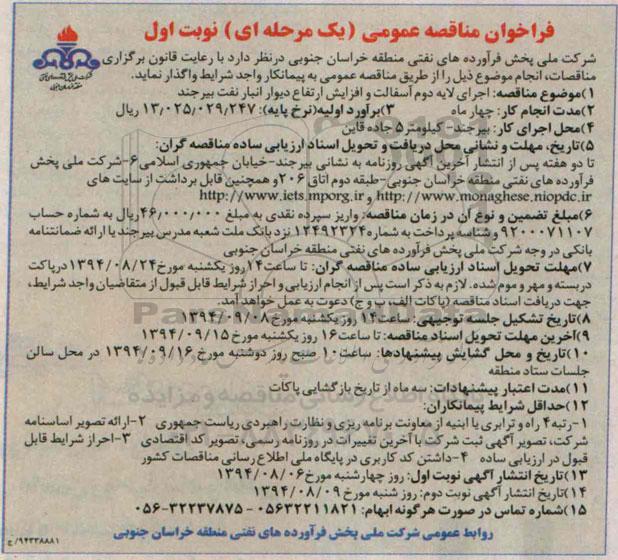 فراخوان مناقصه عمومی (یک مرحله ای) نوبت اول
شرکت ملی پخش فرآورده های نفتی منطقه خراسان جنوبی درنظر دارد با رعایت قانون برگزاری
مناقصات، انجام موضوع ذیل را از طریق مناقصه عمومی به پیمانکار واجد شرایط واگذار نماید.
۱)موضوع مناقصه: اجرای لایه دوم آسفالت و افزایش ارتفاع دیوار انبار نفت بیرجند
۲)مدت انجام کار: چهار ماه ۳)برآورد اولیه(نرخ پایه): ۱۳،۰۲۵،۰۲۹،۲۴۷ ریال
۴)محل اجرای کار: بیرجند- کیلومتر ۵ جاده قاین
۵)تاریخ، مهلت و نشانی محل دریافت و تحویل اسناد ارزیابی ساده مناقصه گران:
تا دو هفته پس از انتشار آخرین آگهی روزنامه به نشانی بیرجند-خیابان جمهوری اسلامی۶-شرکت ملی پخش
فرآورده های نفتی منطقه خراسان جنوبی-طبقه دوم اتاق ۲۰۶ و همچنین قابل برداشت از سایت های
http://www.monaghese.niopdc.ir و http://www.iets.mporg.ir
۶)مبلغ تضمین و نوع آن در زمان مناقصه: واریز سپرده نقدی به مبلغ ۴۶،۰۰۰،۰۰۰ریال به شماره حساب
۹۲۰۰۰۷۱۱۰۷ و شناسه پرداخت به شماره ۱۲۴۹۲۳۲۴ نزد بانک ملت شعبه مدرس بیرجند یا ارائه ضمانتنامه
بانکی در وجه شرکت ملی پخش فرآورده های نفتی منطقه خراسان جنوبی
۷)مهلت تحویل اسناد ارزیابی ساده مناقصه گران: تا ساعت۱۴روز یکشنبه مورخ ۱۳۹۴/۰۸/۲۴ درپاکت
دربسته و مهر و موم شده. لازم به ذکر است پس از انجام ارزیابی و احراز شرایط قابل قبول از متقاضیان واجد شرایط،
جهت دریافت اسناد مناقصه (پاکات الف، ب و ج) دعوت به عمل خواهد آمد.
۸)تاریخ تشکیل جلسه توجیهی: ساعت۱۴ روز یکشنبه مورخ ۱۳۹۴/۰۹/۰۸
۹)آخرین مهلت تحویل اسناد مناقصه: تا ساعت۱۶ روز یکشنبه مورخ ۱۳۹۴/۰۹/۱۵
۱۰)تاریخ و محل گشایش پیشنهادها: ساعت۱۰ صبح روز دوشنبه مورخ ۱۳۹۴/۰۹/۱۶ در محل سالن
جلسات ستاد منطقه
۱۱)مدت اعتبار پیشنهادات: سه ماه از تاریخ بازگشایی پاکات
۱۲)حداقل شرایط پیمانکاران:
۱-رتبه۴ راه و ترابری یا ابنیه از معاونت برنامه ریزی و نظارت راهبردی ریاست جمهوری ۲-ارائه تصویر اساسنامه
شرکت، تصویر آگهی ثبت شرکت با آخرین تغییرات در روزنامه رسمی، تصویر کد اقتصادی ۳-احراز شرایط قابل
قبول در ارزیابی ساده ۴-داشتن کد کاربری در پایگاه ملی اطلاع رسانی مناقصات کشور
۱۳)تاریخ انتشار آگهی نوبت اول: روز چهارشنبه مورخ۱۳۹۴/۰۸/۰۶
۱۴)تاریخ انتشار آگهی نوبت دوم: روز شنبه مورخ ۱۳۹۴/۰۸/۰۹
۱۵)شماره تماس در صورت هرگونه ابهام: ۰۵۶۳۲۲۱۱۸۲۱ - ۳۲۲۳۷۸۷۵-۰۵۶
روابط عمومی شرکت ملی پخش فرآورده های نفتی منطقه خراسان جنوبی
۹۴۳۳۸۸۸۱/ج